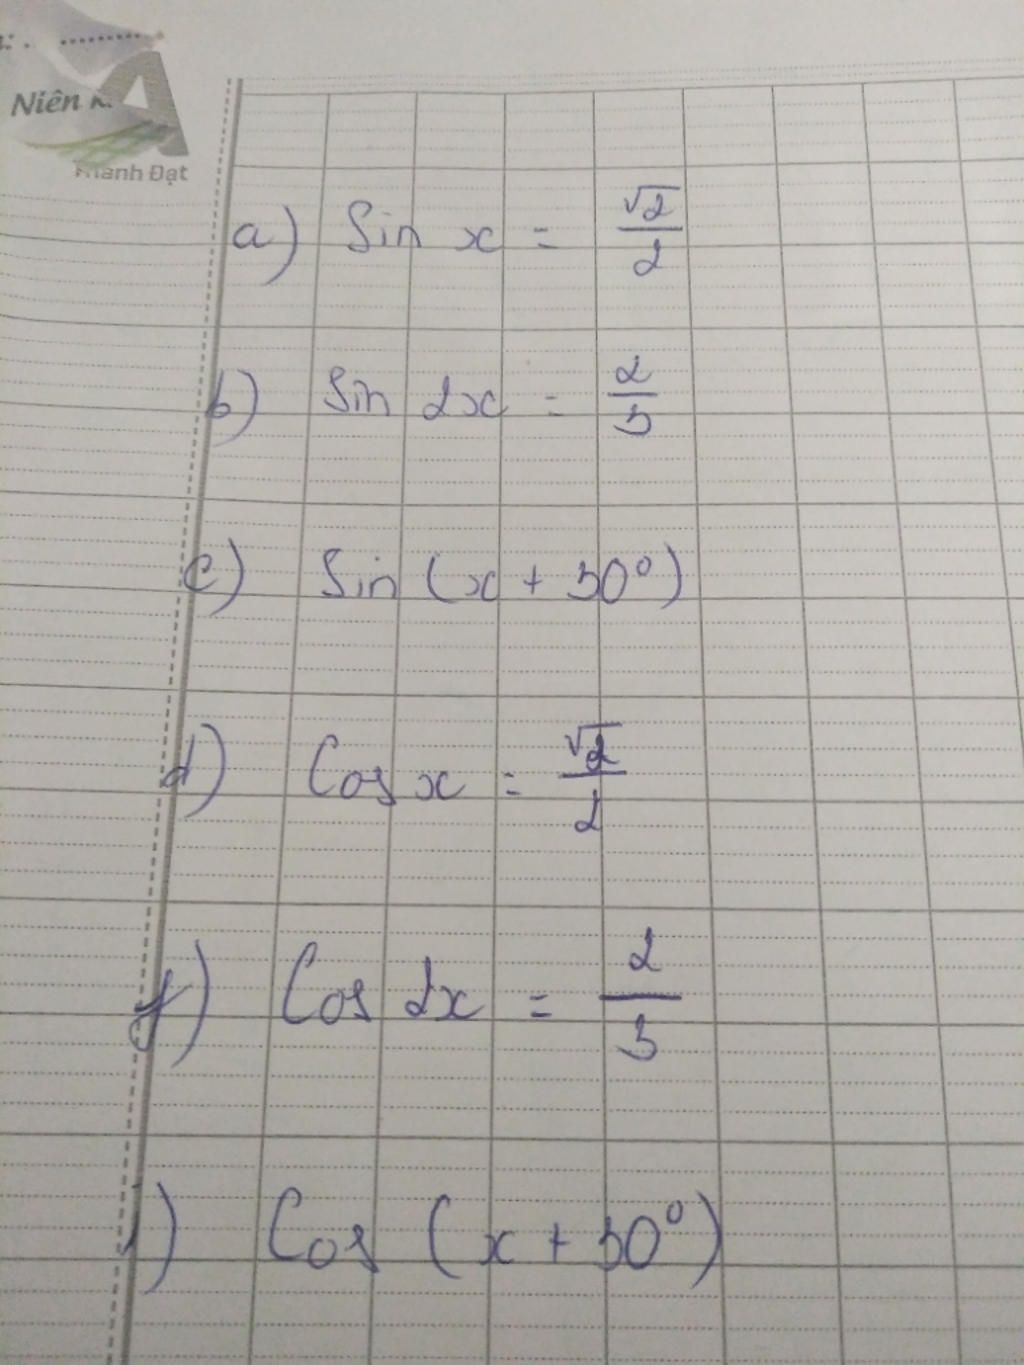 Niên k
Thành Đạt
a) Sin x = √2/2
b) Sin 2x = 2/3
c) Sin (x + 30°)
d) Cos x = √2/2
f) Cos 2x = 2/3
) Cos (x + 30°)